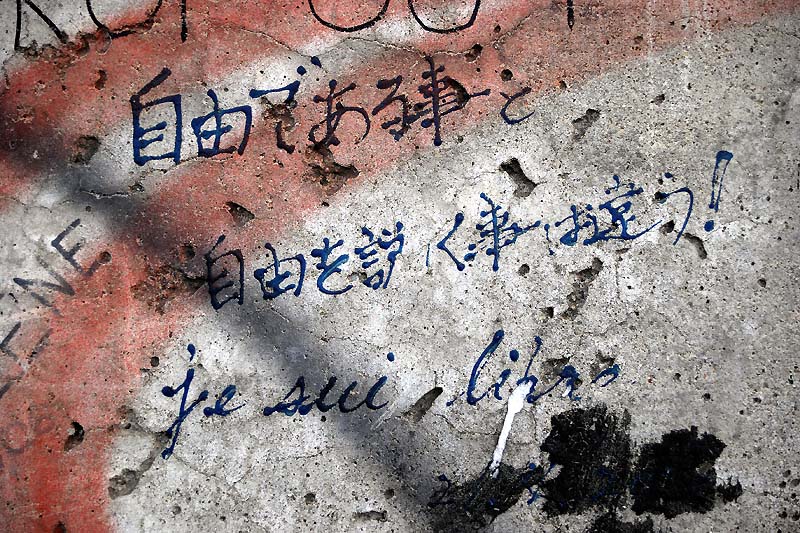 自由である事と
自由を説く事は違う!
je sui libre